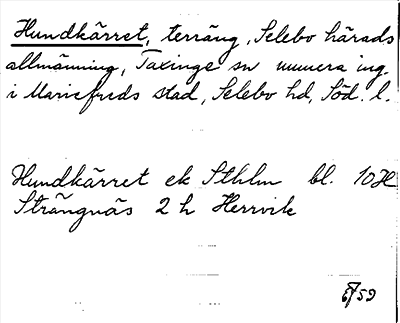 Hundkärret, terräng, Selebo härads
allmänning, Taxinge sn numera ing.
i Mariefreds stad, Selebo hd, Söd. l.
Hundkärret ek Sthlm bl. 10H
Strängnäs 2 h Herrvik
59